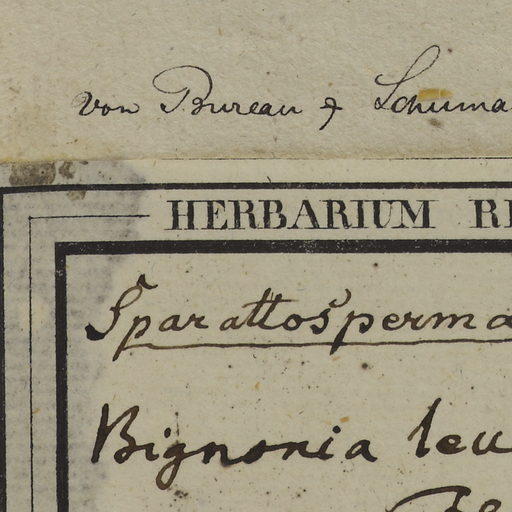 von Bureau & Schuma
HERBARIUM RE
Sparattosperma
Bignonia leu